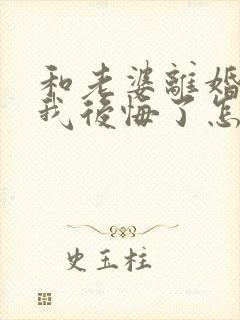 和老婆離婚
我後悔了怎
史玉柱